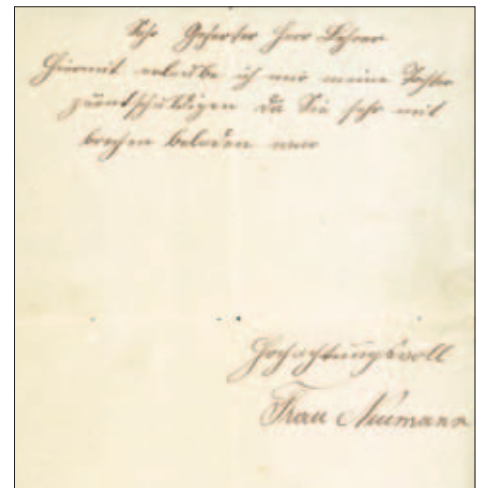 Sehr Geehrter Herr Lehrer
Hiermit erlaube ich mir meine Tochter
zu entschuldigen da Sie sehr mit
brechen beladen war
Hochachtungsvoll
Frau Neumann